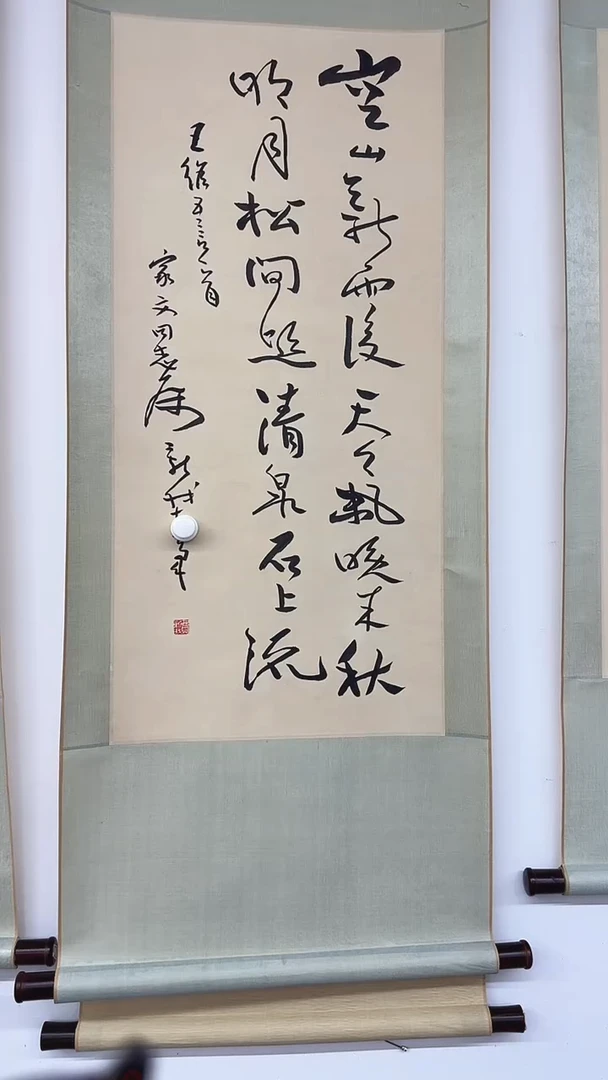 空山新雨後天氣晚来秋
明月松間照清泉石上流
王維五言一首
家文同志属
新我